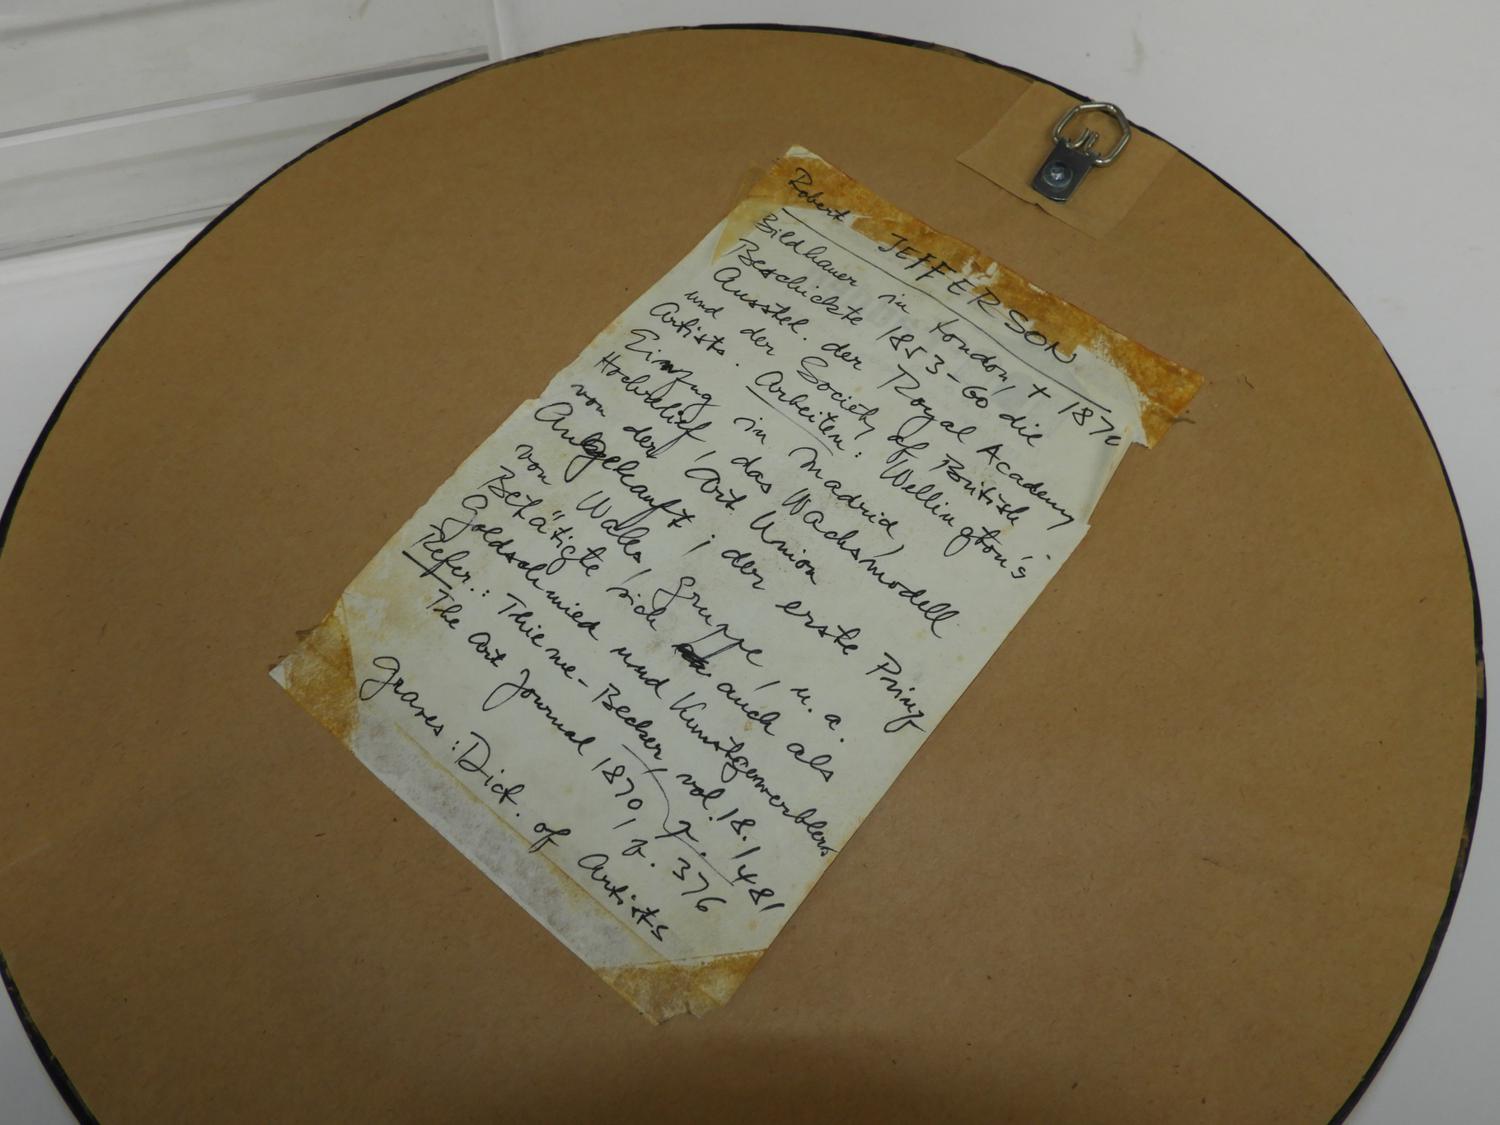 Robert JEFFERSON
Bildhauer in London, + 1870
Beschickte 1853-60 die
Ausstel. der Royal Academy
und der Society of British
Artists. Arbeiten: Wellington's
Einzug in Madrid,
Hochrelief, das Wachsmodell
von der Art Union
Angekauft; der erste Prinz
von Wales, Gruppe, u. a.
Betätigte sich auch als
Goldschmied und Kunstgewerbler
Refer.: Thieme-Becker, vol. 18, / 481
The Art Journal 1870, p. 376
Graves: Dict. of Artists